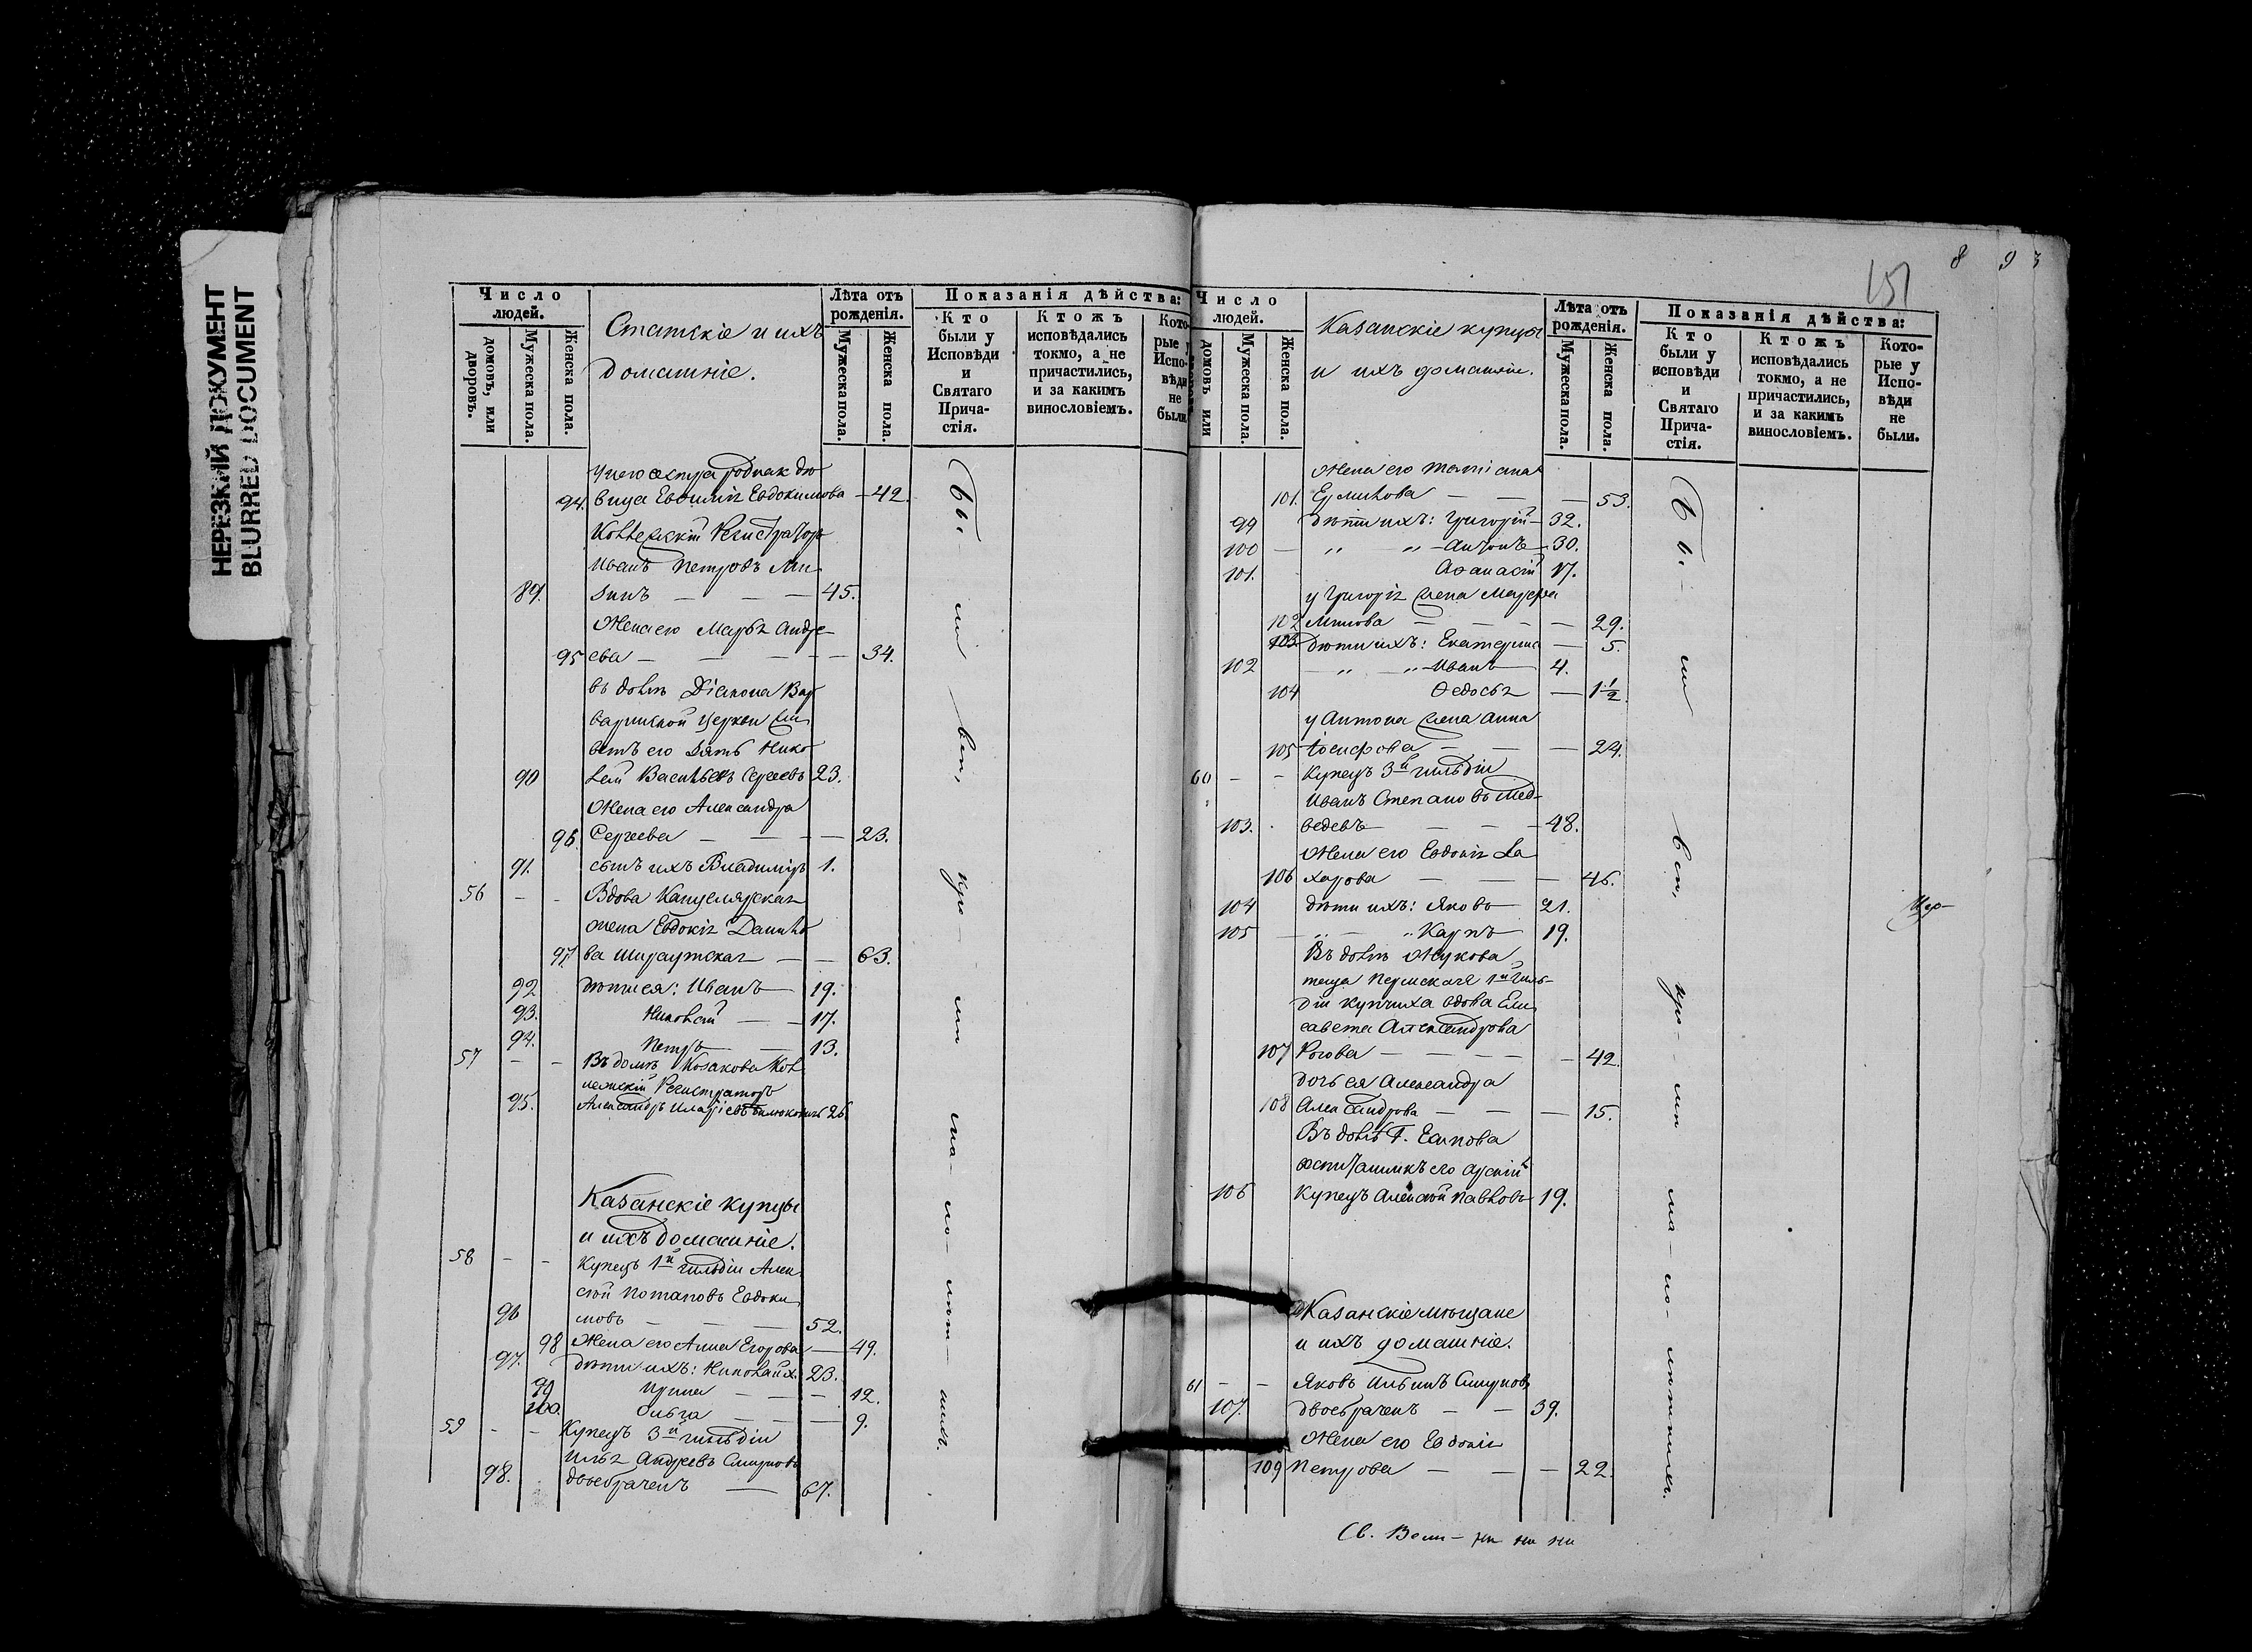 НЕРЕЗКИЙ ДОКУМЕНТ
BLURRED DOCUMENT
Число людей.
домовъ, или дворовъ.
Мужеска пола.
Женска пола.
Статскіе и ихъ
домашніе.
Лѣта отъ рожденія.
Мужеска пола.
Женска пола.
Показанія дѣйства:
Кто были у Исповѣди и Святаго Прича-стія.
Ктожъ исповѣдались токмо, а не причастились, и за какимъ винословіемъ.
Кото-рые у Испо-вѣди не были.
у него сестра родная дѣ-
94. вица Евдокимова — 42.
Коллежскій Регистраторъ
Иванъ Петровъ
89. — — — 45.
Жена его Марья Андре-
95 ева — — — — 34.
въ домѣ Діакона Вар
варинской церкви
зять Нико
90 лай Васильевъ Сергеевъ 23.
Жена его Александра
96. Сергеева — — — — 23.
91. сынъ ихъ Владиміръ 1.
56 - - Вдова Канцелярская
жена Евдокія Данило
97. ва — — 63.
92 дѣти ея: Иванъ — 19.
93. Николай — — 17.
94. Петръ — — 13.
57 - - Въ домѣ Козакова Кол
лежскій Регистраторъ
95. Александръ 26
Казанскіе купцы
и ихъ домашніе.
58 - - Купецъ 1й гильдіи Алек
сѣй Потаповъ Евдоки
96 мовъ — — — 52.
98 Жена его Анна Егорова — 49.
97. дѣти ихъ: Николай 23.
99 Ирина — — — 12.
100. Ольга — — — 9.
59 - - Купецъ 3й гильдіи
Илья Андреевъ Смирновъ
98. двоебраченъ — 67.
Бы ли вси, кро - мѣ ма - ло - лѣт - ныхъ.
8 9 3
151
Число людей.
домовъ или
Мужеска пола.
Женска пола.
Казанскіе купцы
и ихъ домашніе.
Лѣта отъ рожденія.
Мужеска пола.
Женска пола.
Показанія дѣйства:
Кто были у исповѣди и Святаго Прича-стія.
Ктожъ исповѣдались токмо, а не причастились, и за какимъ винословіемъ.
Кото-рые у Испо-вѣди не были.
Жена его Татіана
101. Ермилова — — — 53.
99 дѣти ихъ: Григорій — 32.
100 — „ „ — Антонъ — 30.
101. Афанасій 17.
у Григорія жена Марѳа
102 — — — — 29.
103 дѣти ихъ: Екатерина — 5.
102 — „ „ — Иванъ 4.
104 Ѳедосья — 1½
у Антона жена Анна
105 Іосифова — — — 24.
60 - - Купецъ 3й гильдіи
Иванъ Степановъ Мед-
103. ведевъ — — — 48.
Жена его Евдокія За
106 харова — — — 46.
104 дѣти ихъ: Яковъ 21.
105 — „ — „ Карпъ 19.
Въ домѣ Жукова
теща Пермская 1й гиль-
діи купчиха вдова Ели
савета Александрова
107 Рогова — — — — — 42.
дочь ея Александра
108 Александрова — — — 15.
Въ домѣ Г. Есипова
воспитанникъ его
106 купецъ Алексѣй Павловъ 19.
Казанскіе мѣщане
и ихъ домашніе.
61 - - Яковъ Ильинъ Смирновъ
107. двоебраченъ — — 39.
Жена его Евдокія
109 Петрова — — — 22.
Бы - ли вси, кро - мѣ ма - ло - лѣтныхъ.